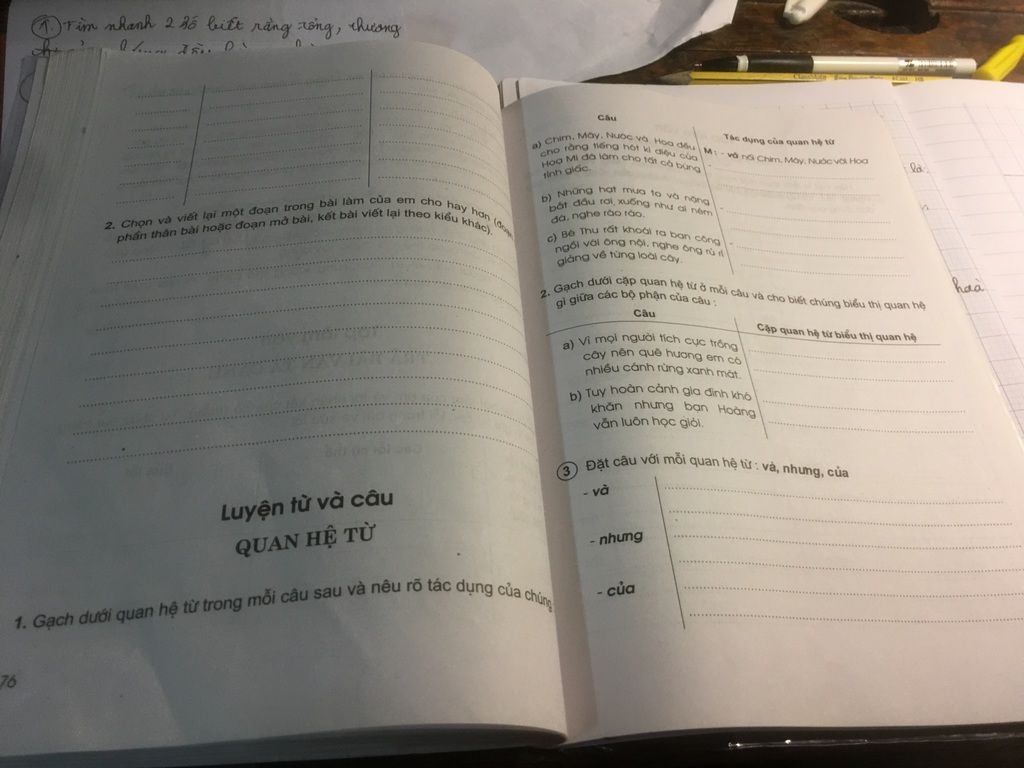 1. Tìm nhanh 2 số biết rằng tổng, thương
2. Chọn và viết lại một đoạn trong bài làm của em cho hay hơn (đoạn
phần thân bài hoặc đoạn mở bài, kết bài viết lại theo kiểu khác).
Luyện từ và câu
QUAN HỆ TỪ
1. Gạch dưới quan hệ từ trong mỗi câu sau và nêu rõ tác dụng của chúng
76
Câu
Tác dụng của quan hệ từ
a) Chim, Mây, Nước và Hoa đều
cho rằng tiếng hót kì diệu của
Hoạ Mi đã làm cho tất cả bừng
tỉnh giấc.
M : - và nối Chim, Mây, Nước với Hoa
b) Những hạt mưa to và nặng
bắt đầu rơi xuống như ai ném
đá, nghe rào rào.
c) Bé Thu rất khoái ra ban công
ngồi với ông nội, nghe ông rủ rỉ
giảng về từng loài cây.
2. Gạch dưới cặp quan hệ từ ở mỗi câu và cho biết chúng biểu thị quan hệ
gì giữa các bộ phận của câu :
Câu
Cặp quan hệ từ biểu thị quan hệ
a) Vì mọi người tích cực trồng
cây nên quê hương em có
nhiều cánh rừng xanh mát.
b) Tuy hoàn cảnh gia đình khó
khăn nhưng bạn Hoàng
vẫn luôn học giỏi.
3 Đặt câu với mỗi quan hệ từ : và, nhưng, của
- và
- nhưng
- của
là:
hoà